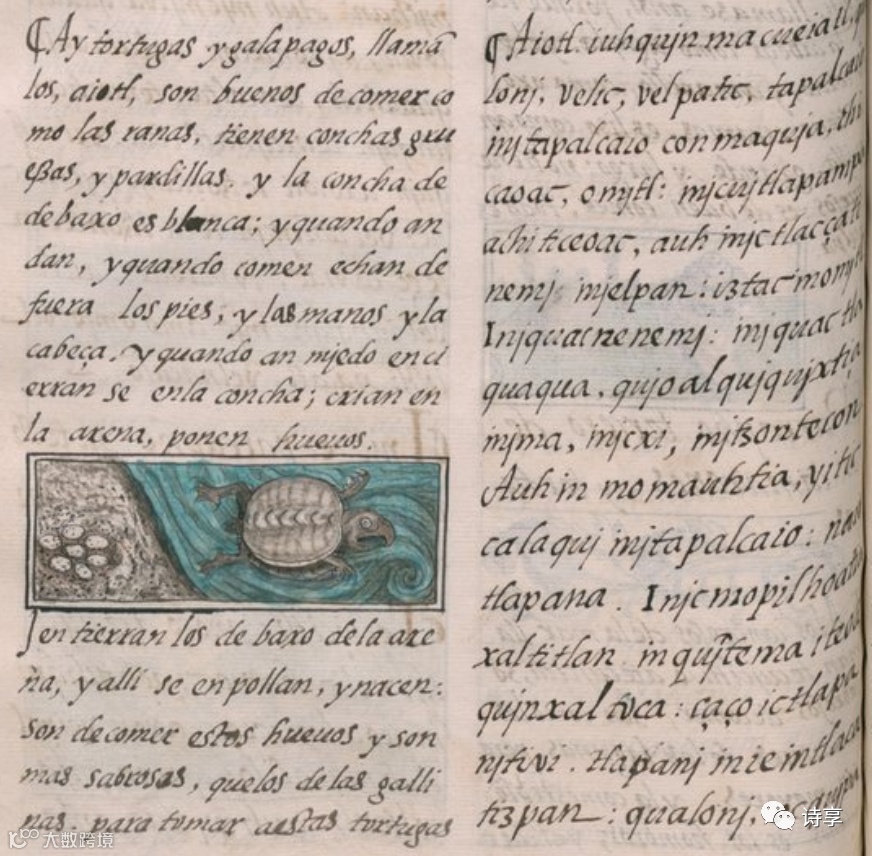 ¶ Ay tortugas y galapagos, llamā
los, aiotl, son buenos de comer co
mo las ranas, tienen conchas grue
eßas, y pardillas. y la concha de
debaxo es blanca; y quando an
dan, y quando comen echan de
fuera los pies, y las manos y la
cabeça. y quando an mjedo enci
erran se enla concha; crian en
la arena, ponen hueuos.
J entierran los de baxo dela are
na, y alli se enpollan, ynacen:
son decomer estos hueuos y son
mas sabrosos, quelos delas galli
nas. para tomar aestas tortugas
¶ Aiotl. iuhqujn ma cueiatl,
lonj, velic, vel patic, tapalcaio
injtapalcaio conmaquja,
caoac, omjtl: injcujtlapampa
achiticeoac, auh injc tlacça
nemj injelpan: iztac
Injquac nenemj: injquac tla
quaqua, qujoalqujqujxtia
injma, injcxi, injtzontecon
Auh in momauhtia, yitic
calaquj injtapalcaio:
tlapana. Injc mopilhoa
xaltitlan in qujtema
qujnxaltoca: çaço ic tlapa
njtivi. tlapanj
tizpan: qualonj,
大数跨境
诗享